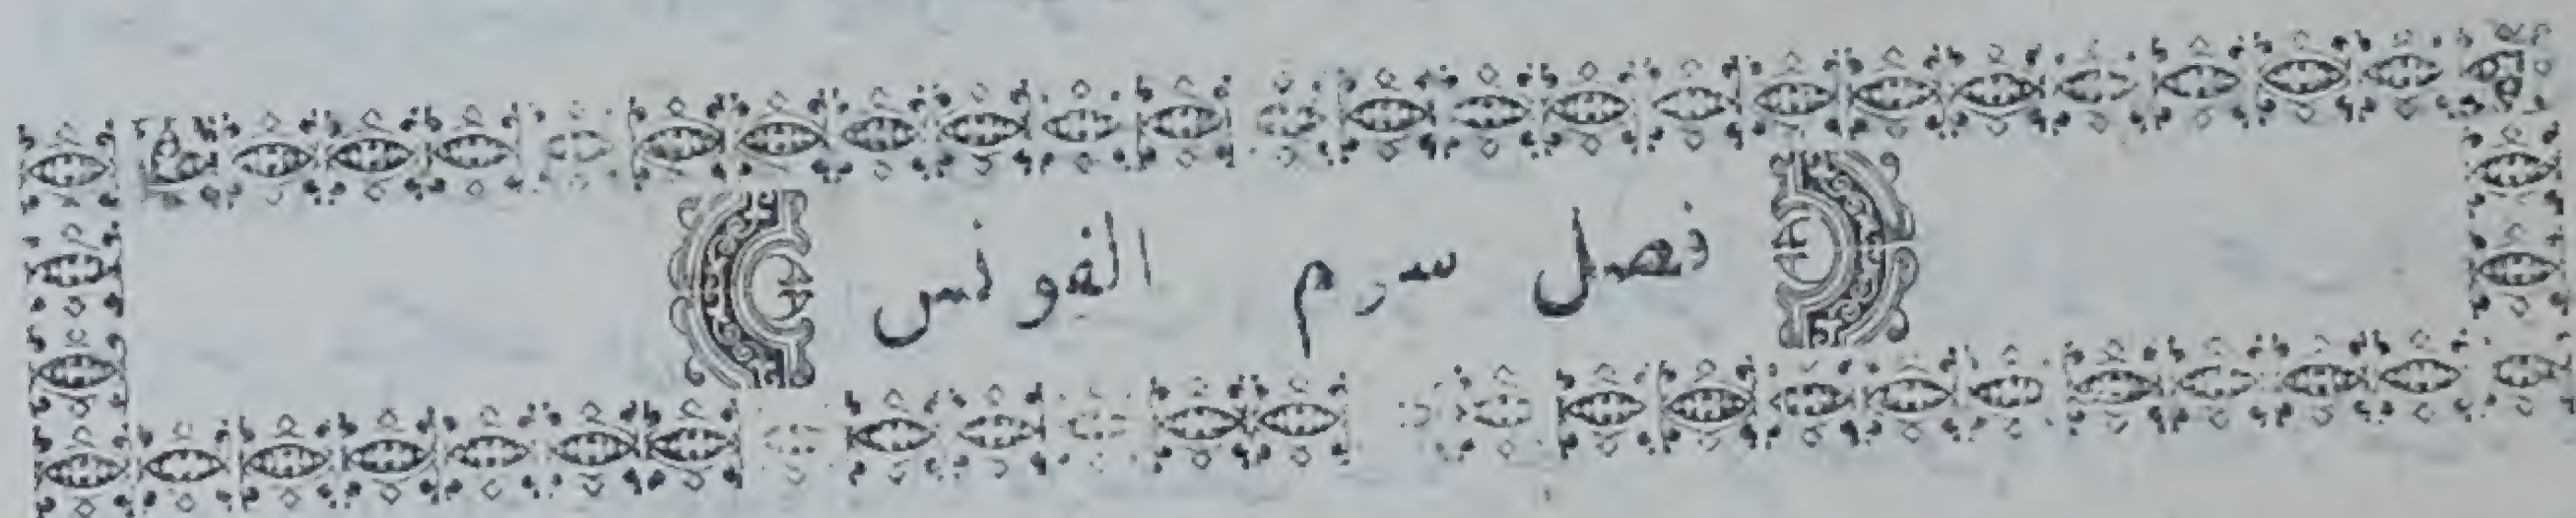 فصل سوم الفونس